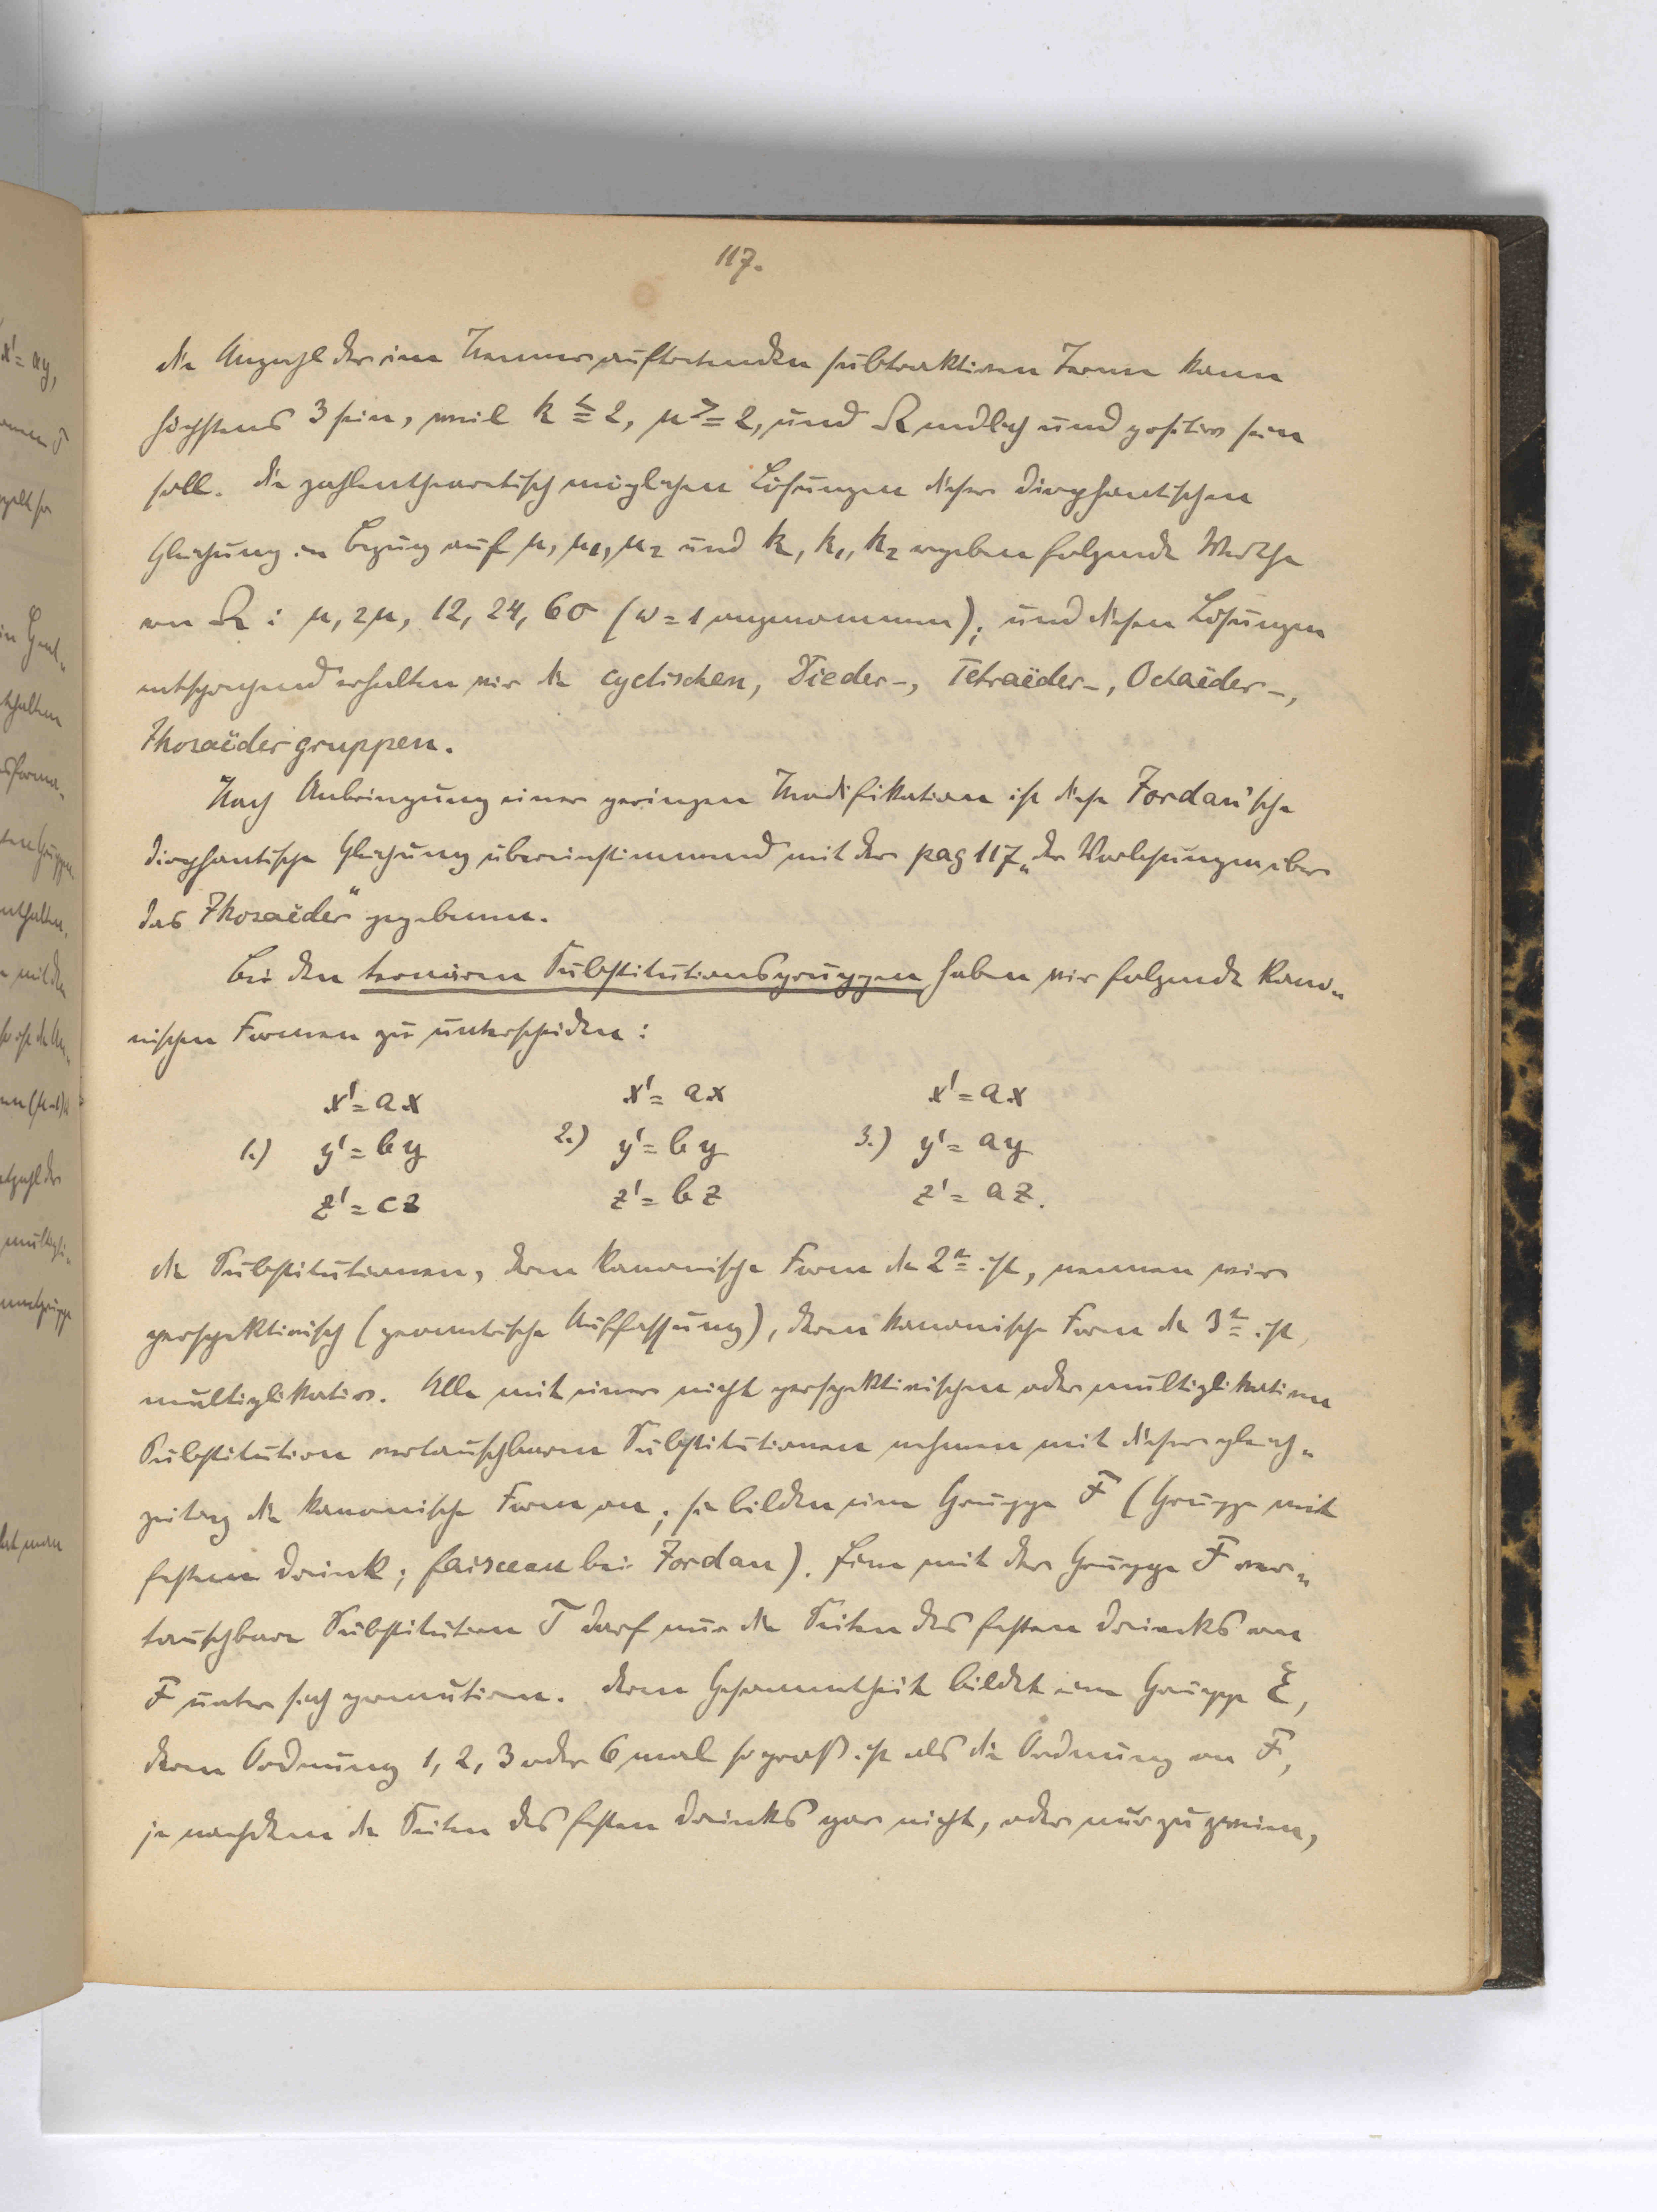 117.
die Anzahl der im Nenner auftretenden subtraktiven Terme kann
höchstens 3 sein, weil k ≦ 2, μ ≧ 2, und Ω endlich und positiv sein
soll. Die zahlentheoretisch möglichen Lösungen dieser diophantischen
Gleichung in Bezug auf μ, μ₁, μ₂ und k, k₁, k₂ ergeben folgende Werthe
von Ω : μ, 2μ, 12, 24, 60 (ω = 1 angenommen); und diesen Lösungen
entsprechend erhalten wir die cyclischen, Dieder-, Tetraëder-, Octaëder-,
Ikosaëdergruppen.
Nach Anbringung einer geringen Modifikation ist diese Jordan'sche
diophantische Gleichung übereinstimmend mit der pag 117 „der Vorlesungen über
das Ikosaëder“ gegebenen.
Bei den ternären Substitutionsgruppen haben wir folgende kano-
nischen Formen zu unterscheiden:
x' = ax x' = ax x' = ax
1.) y' = by 2.) y' = by 3.) y' = ay
z' = cz z' = bz z' = az.
Die Substitutionen, deren kanonische Form die 2te ist, nennen wir
perspektivisch (geometrische Auffassung), deren kanonische Form die 3te ist,
multiplikativ. Alle mit einer nicht perspektivischen oder multiplikativen
Substitution vertauschbaren Substitutionen nehmen mit dieser gleich-
zeitig die kanonische Form an; sie bilden eine Gruppe F (Gruppe mit
festem Dreieck; faisceau bei Jordan). Eine mit der Gruppe F ver-
tauschbare Substitution T darf nur die Seiten des festen Dreiecks von
F unter sich permutieren. Deren Gesammtheit bildet eine Gruppe ξ,
deren Ordnung 1, 2, 3 oder 6 mal so groß ist als die Ordnung von F,
je nachdem die Seiten des festen Dreiecks gar nicht, oder nur zu zweien,
x' = ay,